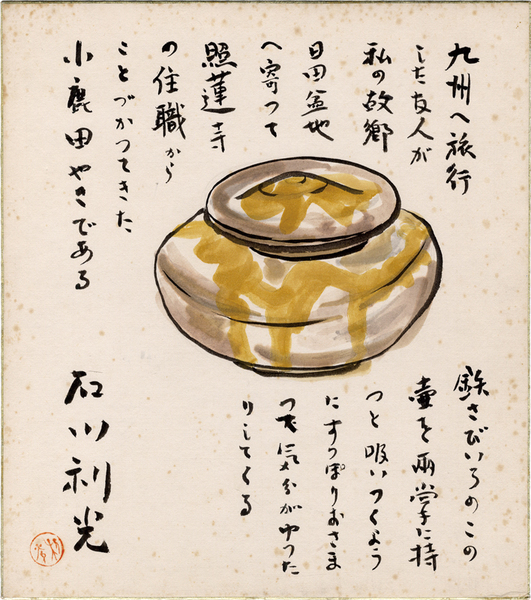 九州へ旅行
した友人が
私の故郷
日田盆地
へ寄つて
照蓮寺
の住職から
ことづかつてきた
小鹿田やきである
鉄さびいろのこの
壷を両掌に持
つと吸いつくよう
にすつぽりおさま
つて気分がゆつた
りしてくる
石川利光